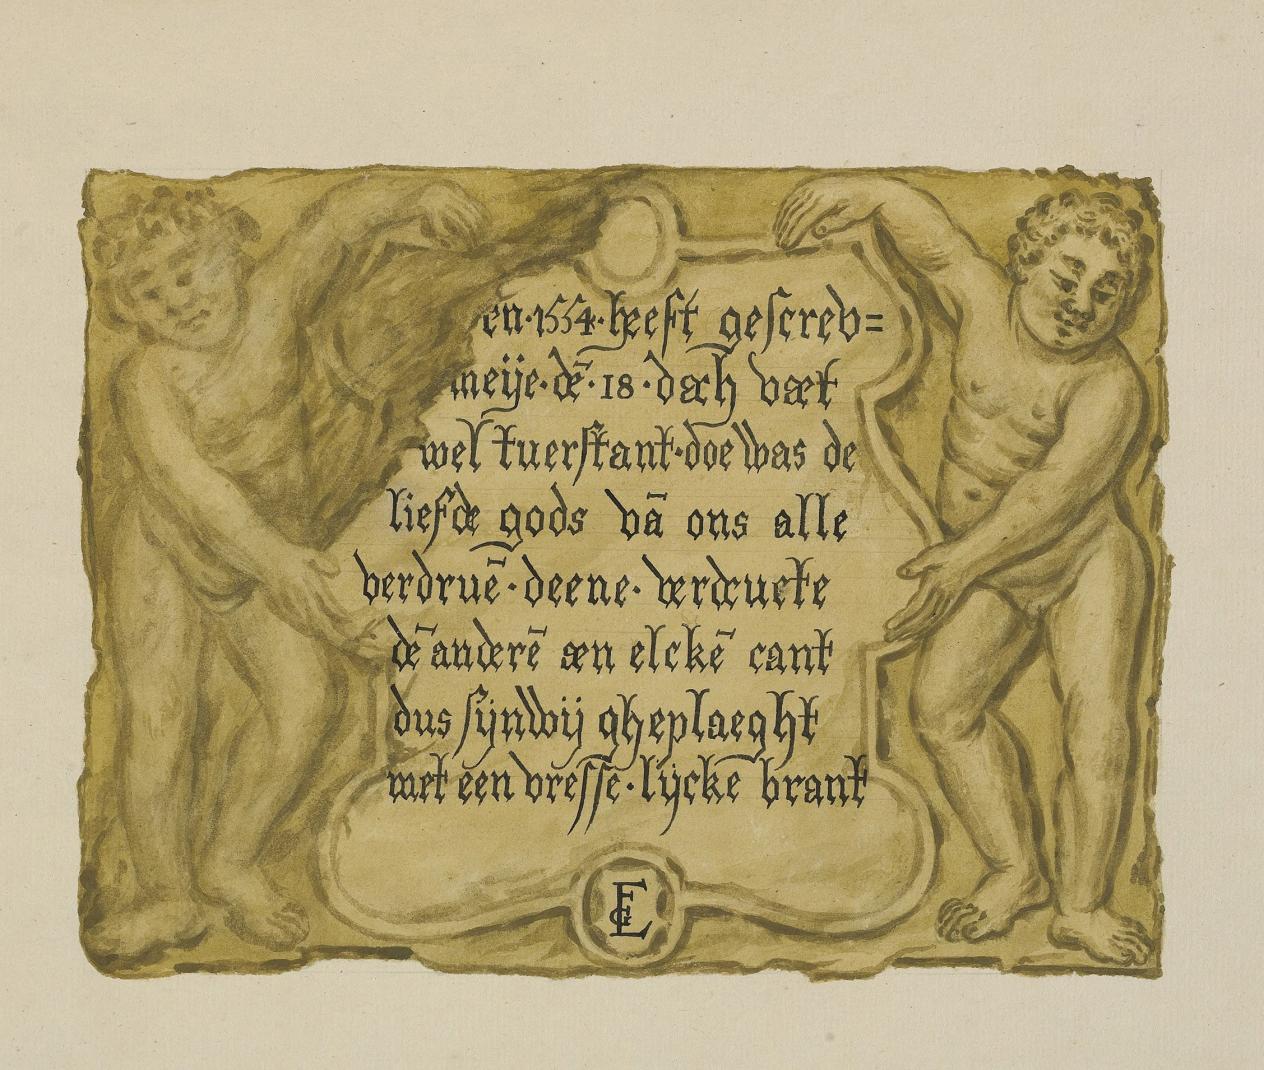 en·1554·heeft gescrev=
meije·dē·18·dach vaet
wel tuerstant·doe was de
liefde gods vā ons alle
verdruē·deene·verdruete
dē anderē aen elckē cant
dus sijn wij gheplaeght
met een vresse·lijcke brant